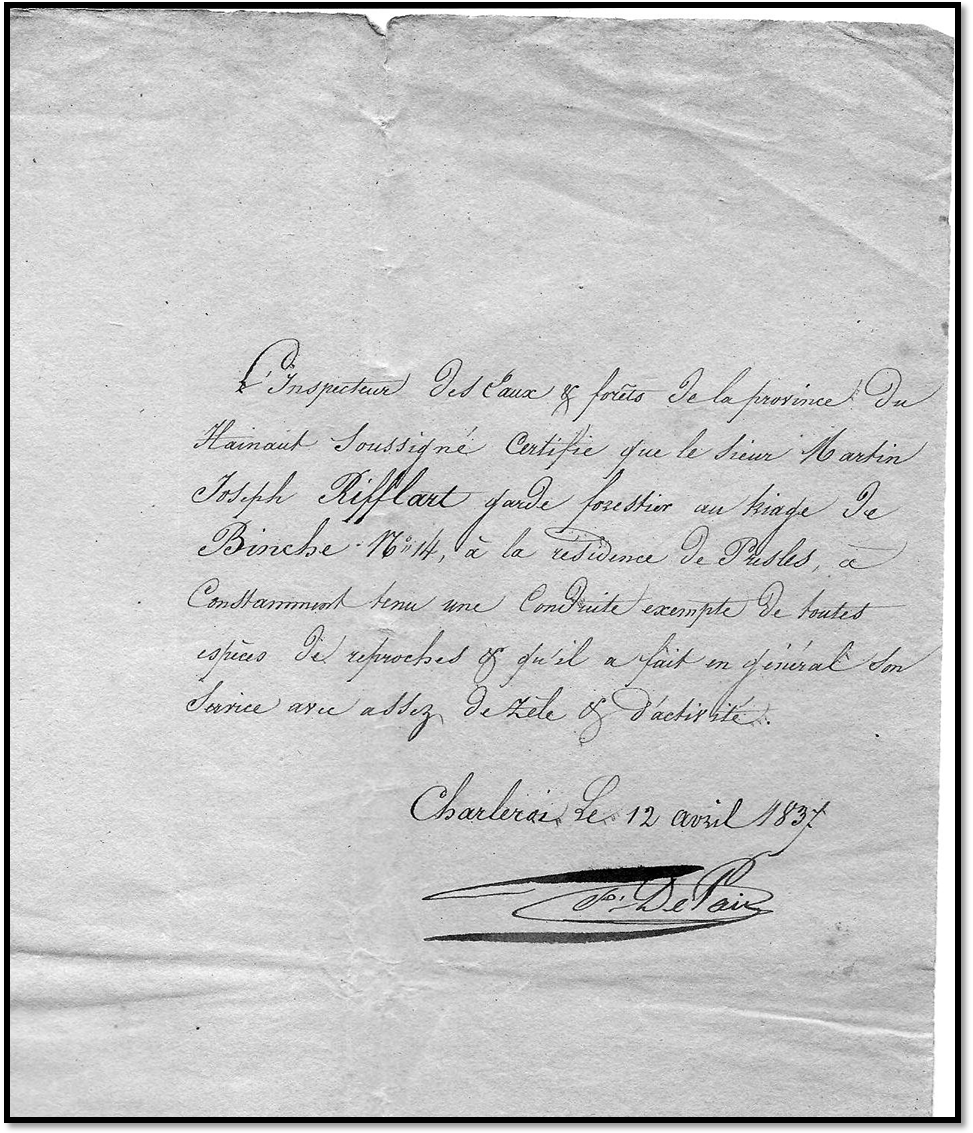 L'Inspecteur des Eaux & forêts de la province du
Hainaut Soussigné Certifie que le sieur Martin
Joseph Rifflart garde forestier au triage de
Binche N.º 14, à la résidence de Presles, a
Constamment tenu une Conduite exempte de toutes
espèces de reproches & qu'il a fait en général son
Service avec assez de zèle & d'activité.
Charleroi, Le 12 avril 1837
De Pair